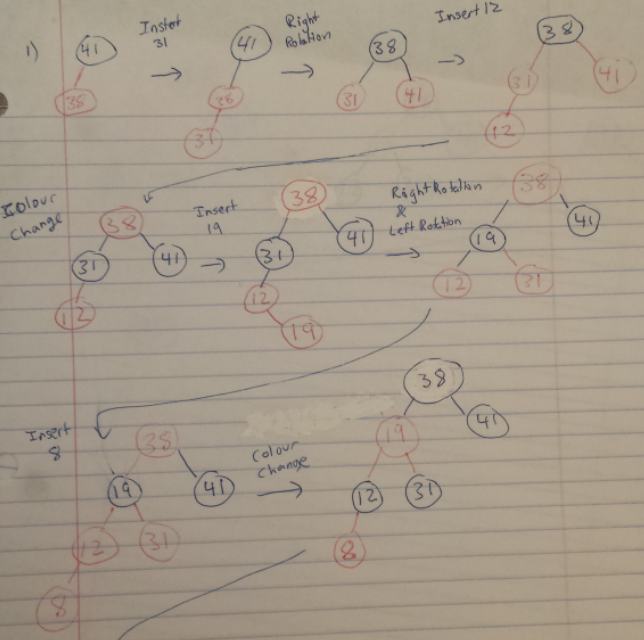 1)
41
38
Instert
31
41
38
31
Right
Rotation
38
31
41
Insert 12
38
31
41
12
Colour
Change
38
31
41
12
Insert
19
38
31
41
12
19
Right Rotation
&
Left Rotation
38
19
41
12
31
Insert
8
38
19
41
12
31
8
Colour
Change
38
19
41
12
31
8